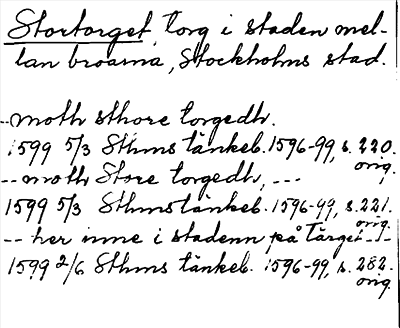 Stortorget, torg i staden mel-
lan broarna, Stockholms stad.
--moth sthore torgedh.
1599 5/3 Sthms tänkeb. 1596-99, s. 220.
orig.
-- moth Store torgedh, ---
1599 5/3 Sthms tänkeb. 1596-99, s. 221.
orig.
-- her inne i stadenn på Târget---
1599 2/6 Sthms tänkeb. 1596-99, s. 282.
orig.